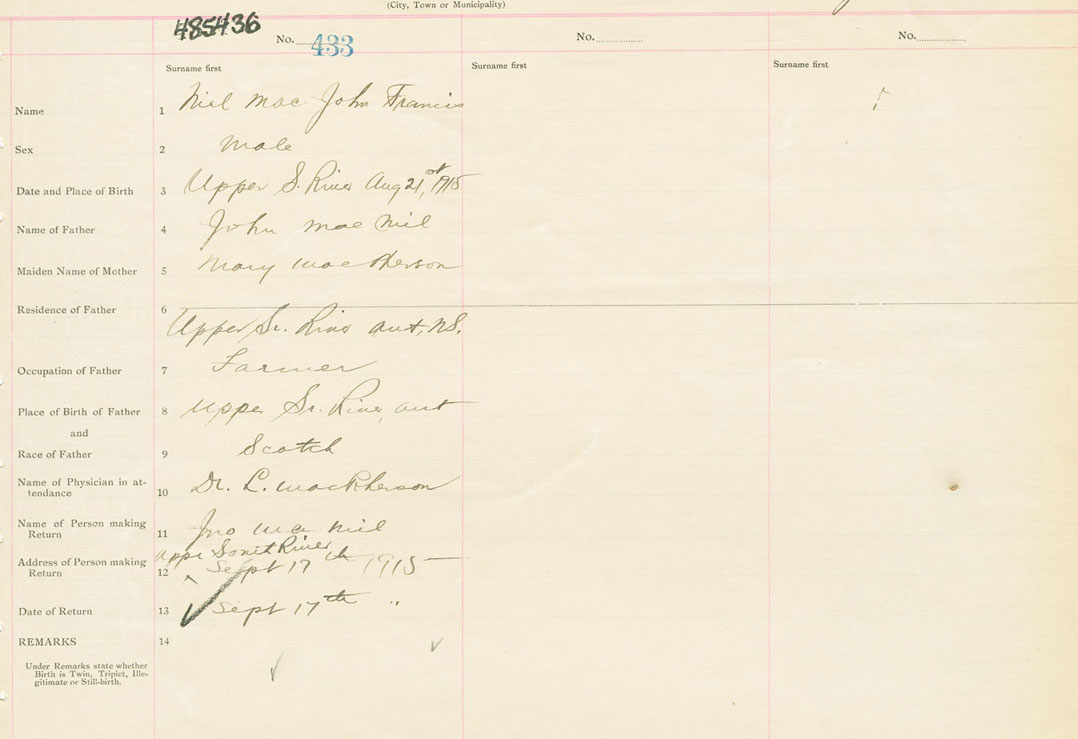 (City, Town or Municipality)
485436
No. 433
No.
No.
Surname first
Surname first
Surname first
Name 1 Niel Mac John Francis
Sex 2 Male
Date and Place of Birth 3 Upper S. River Aug 21st, 1915
Name of Father 4 John Mac Niel
Maiden Name of Mother 5 Mary MacPherson
Residence of Father 6
Upper So. River Ant, N.S.
Occupation of Father 7 Farmer
Place of Birth of Father 8 Upper So. River, Ant
and
Race of Father 9 Scotch
Name of Physician in at-
tendance 10 Dr. L. MacPherson
Name of Person making
Return 11 Jno Mc Niel
Upper South River
Address of Person making
Return 12 Sept 17th 1915
Date of Return 13 Sept 17th "
REMARKS 14
Under Remarks state whether
Birth is Twin, Triplet, Ille-
gitimate or Still-birth.